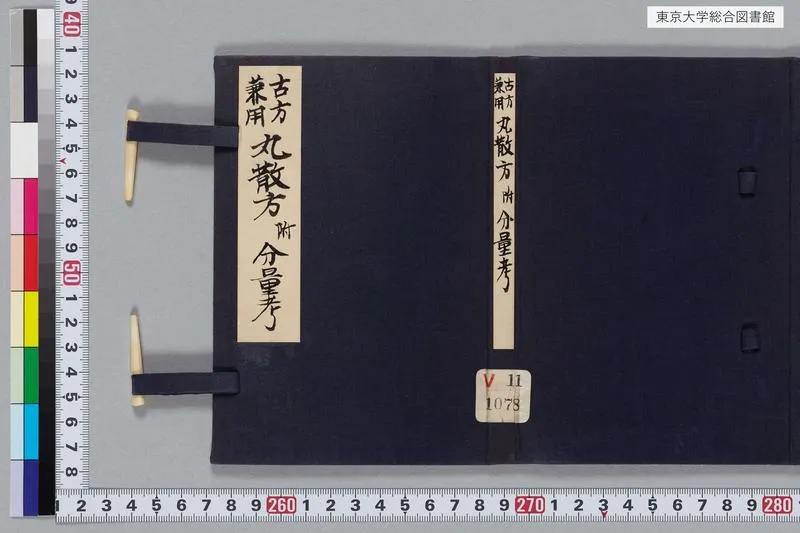 東京大学総合図書館
古方
兼用
丸散方
附
分量考
古方
兼用
丸散方
附
分量考
V 11
1078
40
1
2
3
4
5
6
7
8
9
50
1
2
3
4
5
6
7
8
1 2 3 4 5 6 7 8 9 260 1 2 3 4 5 6 7 8 9 270 1 2 3 4 5 6 7 8 9 280